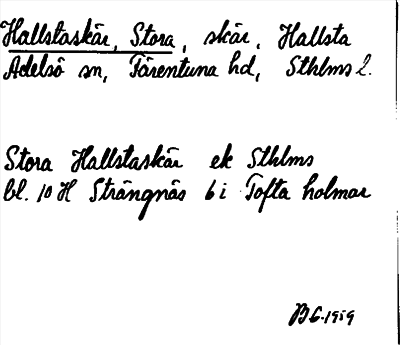 Hallstaskär, Stora, skär, Hallsta
Adelsö sn, Färentuna hd, Sthlms l.
Stora Hallstaskär ek Sthlms
bl. 10 H Strängnäs 6 i Tofta holmar
BG. 1959